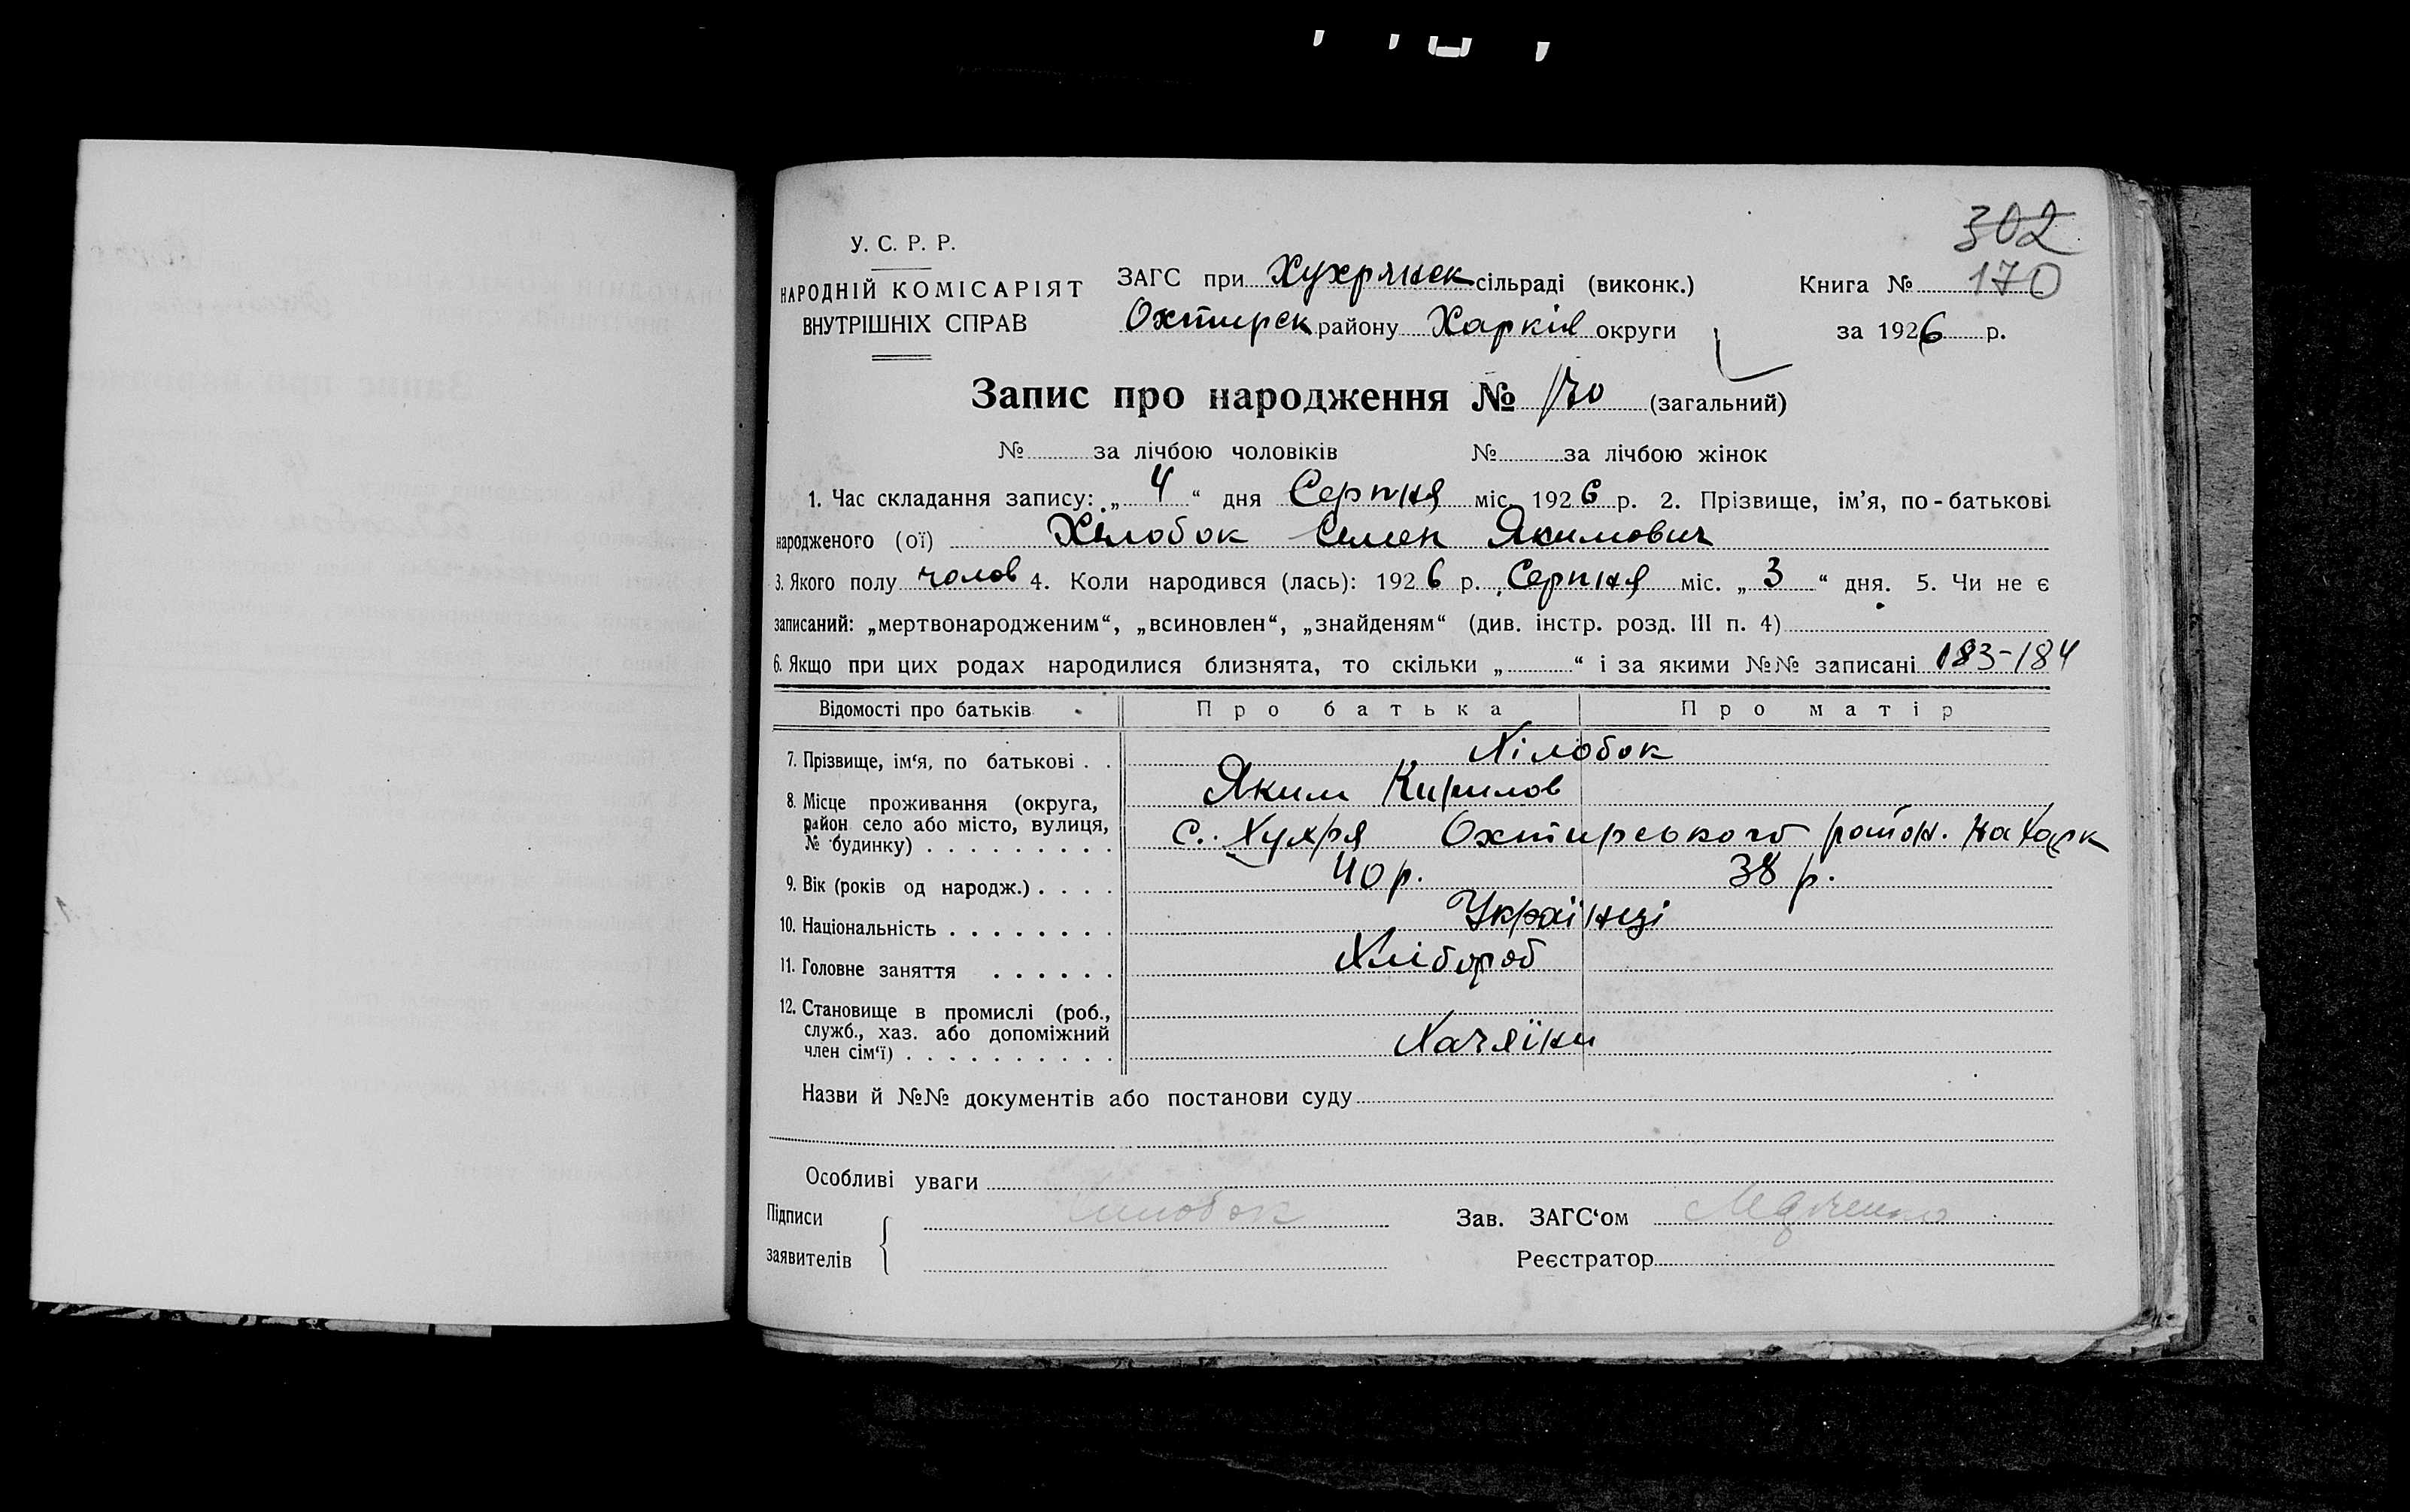 302
У. С. Р. Р.
НАРОДНІЙ КОМІСАРІЯТ ЗАГС при Хухрянск сільраді (виконк.) Книга № 170
ВНУТРІШНІХ СПРАВ Охтирск району Харків округи за 1926 р.
Запис про народження № 170 (загальний)
№ за лічбою чоловіків № за лічбою жінок
1. Час складання запису: „ 4 “ дня Серпня міс. 1926 р. 2. Прізвище, ім’я, по-батькові
народженого (ої) Хілобок Семен Якимович
3. Якого полу чолов 4. Коли народився (лась): 1926 р. Серпня міс. „ 3 “ дня. 5. Чи не є
записаний: „мертвонародженим“, „всиновлен“, „знайденям“ (див. інстр. розд. III п. 4)
6. Якщо при цих родах народилися близнята, то скільки „ “ і за якими №№ записані 183-184
Відомості про батьків Про батька Про матір
7. Прізвище, ім‘я, по батькові . . Хілобок
Яким Кирилов
8. Місце проживання (округа,
район село або місто, вулиця,
№ будинку) . . . . . . . . . с. Хухря Охтирського район. на Харк
9. Вік (років од народж.) . . . . 40 р. 38 р.
10. Національність . . . . . . . . Українці
11. Головне заняття . . . . . . Хлібороб
12. Становище в промислі (роб.,
служб., хаз. або допоміжний
член сім‘ї) . . . . . . . . . . Хазяїни
Назви й №№ документів або постанови суду
Особливі уваги
Підписи Хилобок Зав. ЗАГС‘ом
заявителів Реєстратор